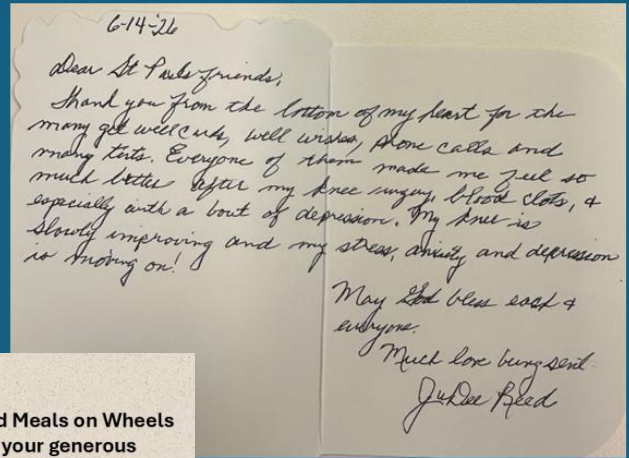 6-14-26
Dear St Pauls friends,
Thank you from the bottom of my heart for the
many get well cards, well wishes, phone calls and
many texts. Everyone of them made me feel so
much better after my knee surgery, blood clots, &
especially with a bout of depression. My knee is
slowly improving and my stress, anxiety and depression
is moving on!
May God bless each &
everyone.
Much love being sent
JuDee Reed
d Meals on Wheels
your generous